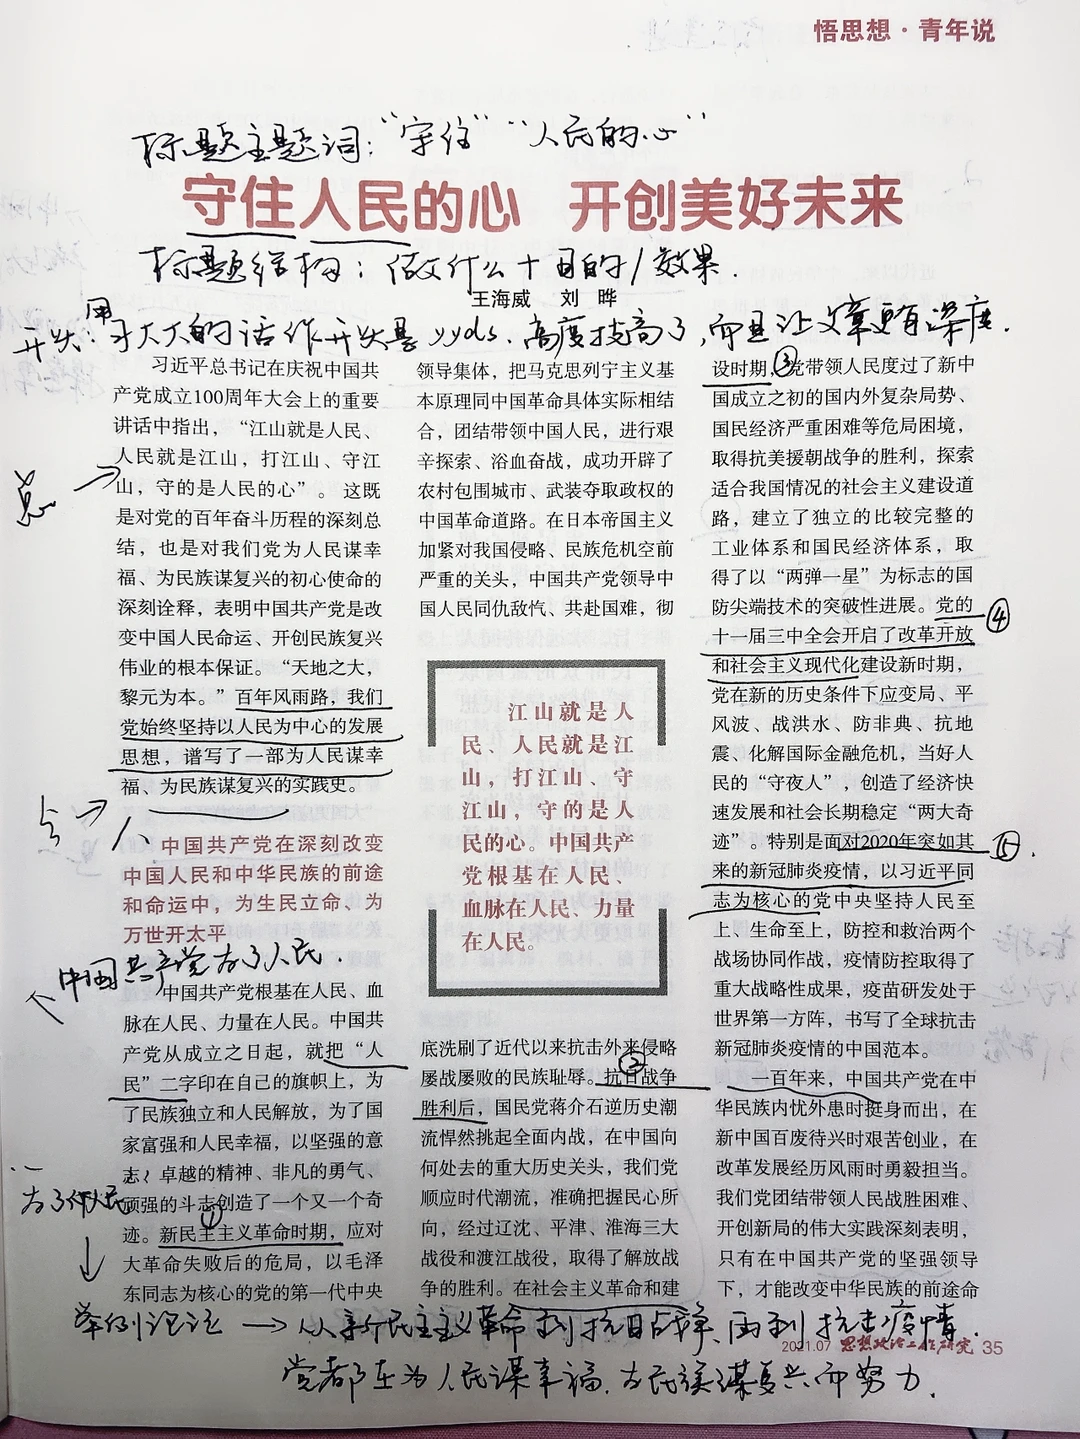 悟思想·青年说
标题主题词：“守住”“人民的心”
守住人民的心 开创美好未来
标题结构：做什么+目的/效果.
王海威 刘晔
开头：用习大大的话作开头是yyds.高度拔高了,而且让文章更有深度.
习近平总书记在庆祝中国共
产党成立100周年大会上的重要
讲话中指出，“江山就是人民、
人民就是江山，打江山、守江
总
山，守的是人民的心”。这既
是对党的百年奋斗历程的深刻总
结，也是对我们党为人民谋幸
福、为民族谋复兴的初心使命的
深刻诠释，表明中国共产党是改
变中国人民命运、开创民族复兴
伟业的根本保证。“天地之大，
黎元为本。”百年风雨路，我们
党始终坚持以人民为中心的发展
思想，谱写了一部为人民谋幸
福、为民族谋复兴的实践史。
中国共产党在深刻改变
中国人民和中华民族的前途
和命运中，为生民立命、为
万世开太平
中国共产党为了人民.
中国共产党根基在人民、血
脉在人民、力量在人民。中国共
产党从成立之日起，就把“人
民”二字印在自己的旗帜上，为
了民族独立和人民解放，为了国
家富强和人民幸福，以坚强的意
志、卓越的精神、非凡的勇气、
为了人民
顽强的斗志创造了一个又一个奇
①
迹。新民主主义革命时期，应对
大革命失败后的危局，以毛泽
东同志为核心的党的第一代中央
领导集体，把马克思列宁主义基
本原理同中国革命具体实际相结
合，团结带领中国人民，进行艰
辛探索、浴血奋战，成功开辟了
农村包围城市、武装夺取政权的
中国革命道路。在日本帝国主义
加紧对我国侵略、民族危机空前
严重的关头，中国共产党领导中
国人民同仇敌忾、共赴国难，彻
江山就是人
民、人民就是江
山，打江山、守
江山，守的是人
民的心。中国共产
党根基在人民、
血脉在人民、力量
在人民。
底洗刷了近代以来抗击外来侵略
②
屡战屡败的民族耻辱。抗日战争
胜利后，国民党蒋介石逆历史潮
流悍然挑起全面内战，在中国向
何处去的重大历史关头，我们党
顺应时代潮流，准确把握民心所
向，经过辽沈、平津、淮海三大
战役和渡江战役，取得了解放战
争的胜利。在社会主义革命和建
设时期，③党带领人民度过了新中
国成立之初的国内外复杂局势、
国民经济严重困难等危局困境，
取得抗美援朝战争的胜利，探索
适合我国情况的社会主义建设道
路，建立了独立的比较完整的
工业体系和国民经济体系，取
得了以“两弹一星”为标志的国
防尖端技术的突破性进展。党的
④
十一届三中全会开启了改革开放
和社会主义现代化建设新时期，
党在新的历史条件下应变局、平
风波、战洪水、防非典、抗地
震、化解国际金融危机，当好人
民的“守夜人”，创造了经济快
速发展和社会长期稳定“两大奇
迹”。特别是面对2020年突如其
⑤.
来的新冠肺炎疫情，以习近平同
志为核心的党中央坚持人民至
上、生命至上，防控和救治两个
战场协同作战，疫情防控取得了
重大战略性成果，疫苗研发处于
世界第一方阵，书写了全球抗击
新冠肺炎疫情的中国范本。
一百年来，中国共产党在中
华民族内忧外患时挺身而出，在
新中国百废待兴时艰苦创业，在
改革发展经历风雨时勇毅担当。
我们党团结带领人民战胜困难、
开创新局的伟大实践深刻表明，
只有在中国共产党的坚强领导
下，才能改变中华民族的前途命
举例论证→从新民主主义革命到抗日战争、再到抗击疫情.
党都在为人民谋幸福.为民族谋复兴而努力.
2021.07 思想政治工作研究 35